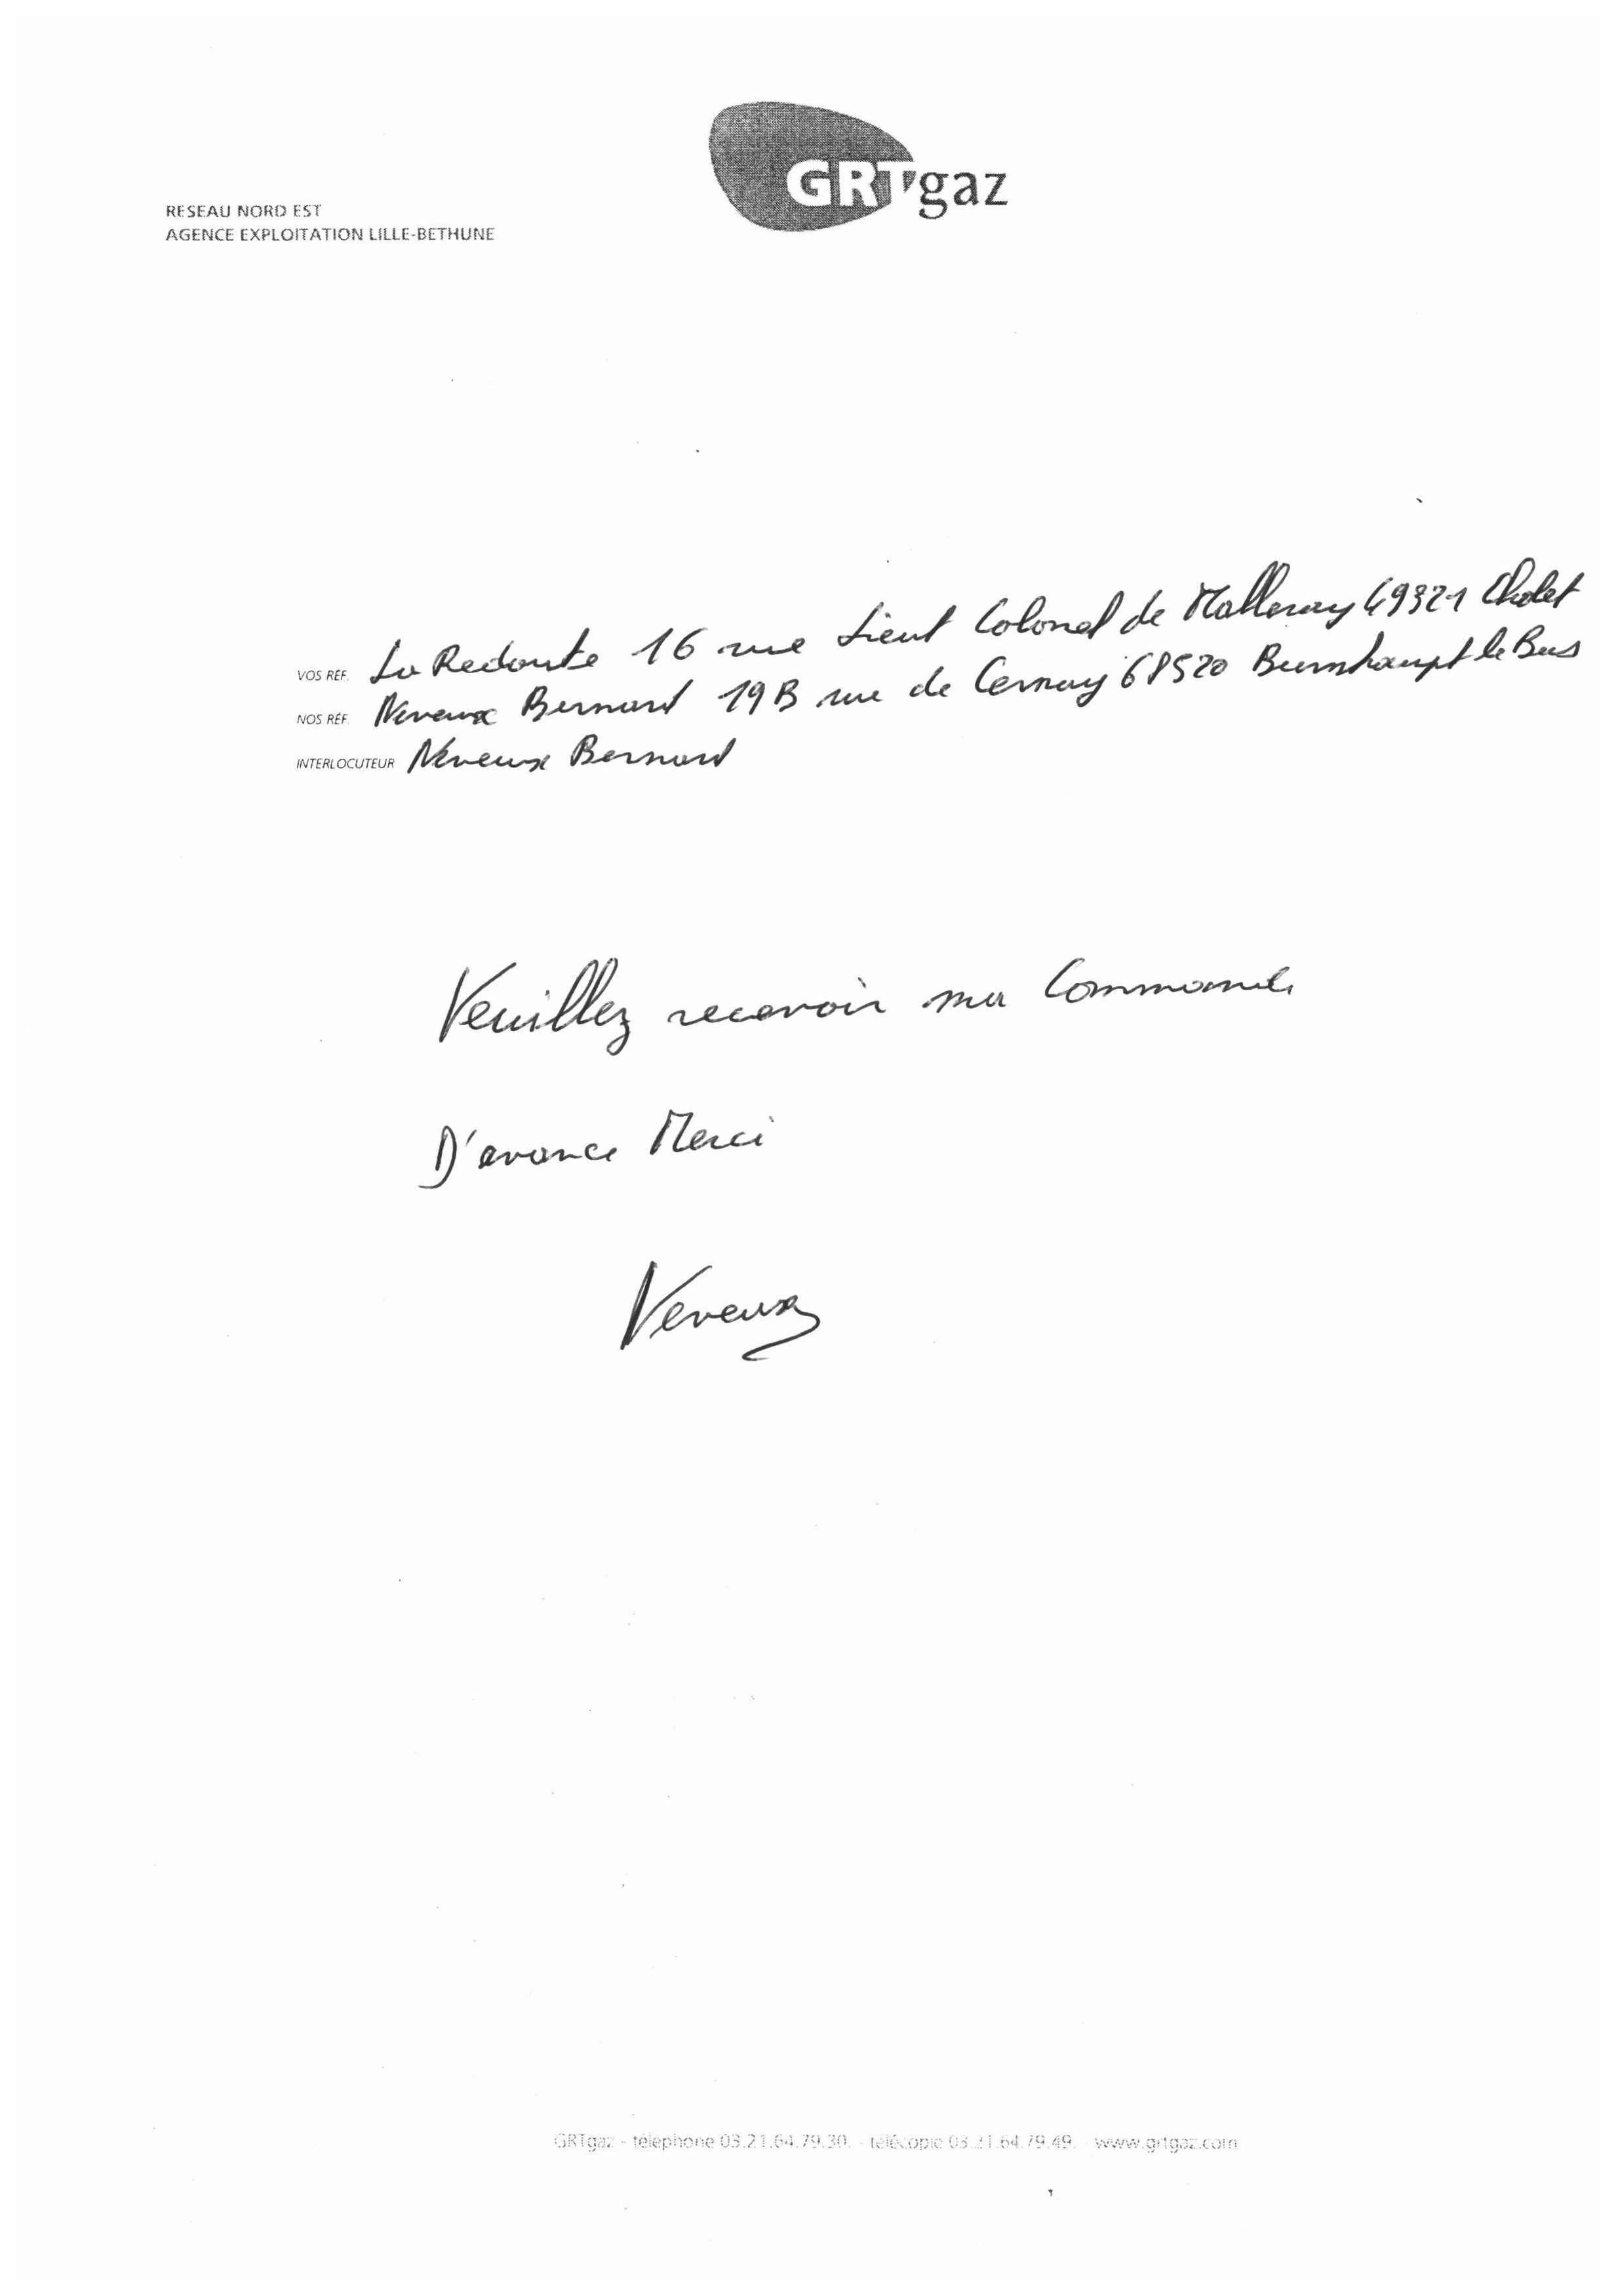 GRTgaz
RESEAU NORD EST
AGENCE EXPLOITATION LILLE-BETHUNE
VOS RÉF. La Redoute 16 rue Lieut Colonel de Malleray 49321 Cholet
NOS RÉF. Neveux Bernard 19B rue de Cernay 68520 Burnhaupt le Bas
INTERLOCUTEUR Neveux Bernard
Veuillez recevoir ma Commande
D'avance Merci
Neveux
GRTgaz - téléphone 03.21.64.79.30. - télécopie 03.21.64.79.49. - www.grtgaz.com